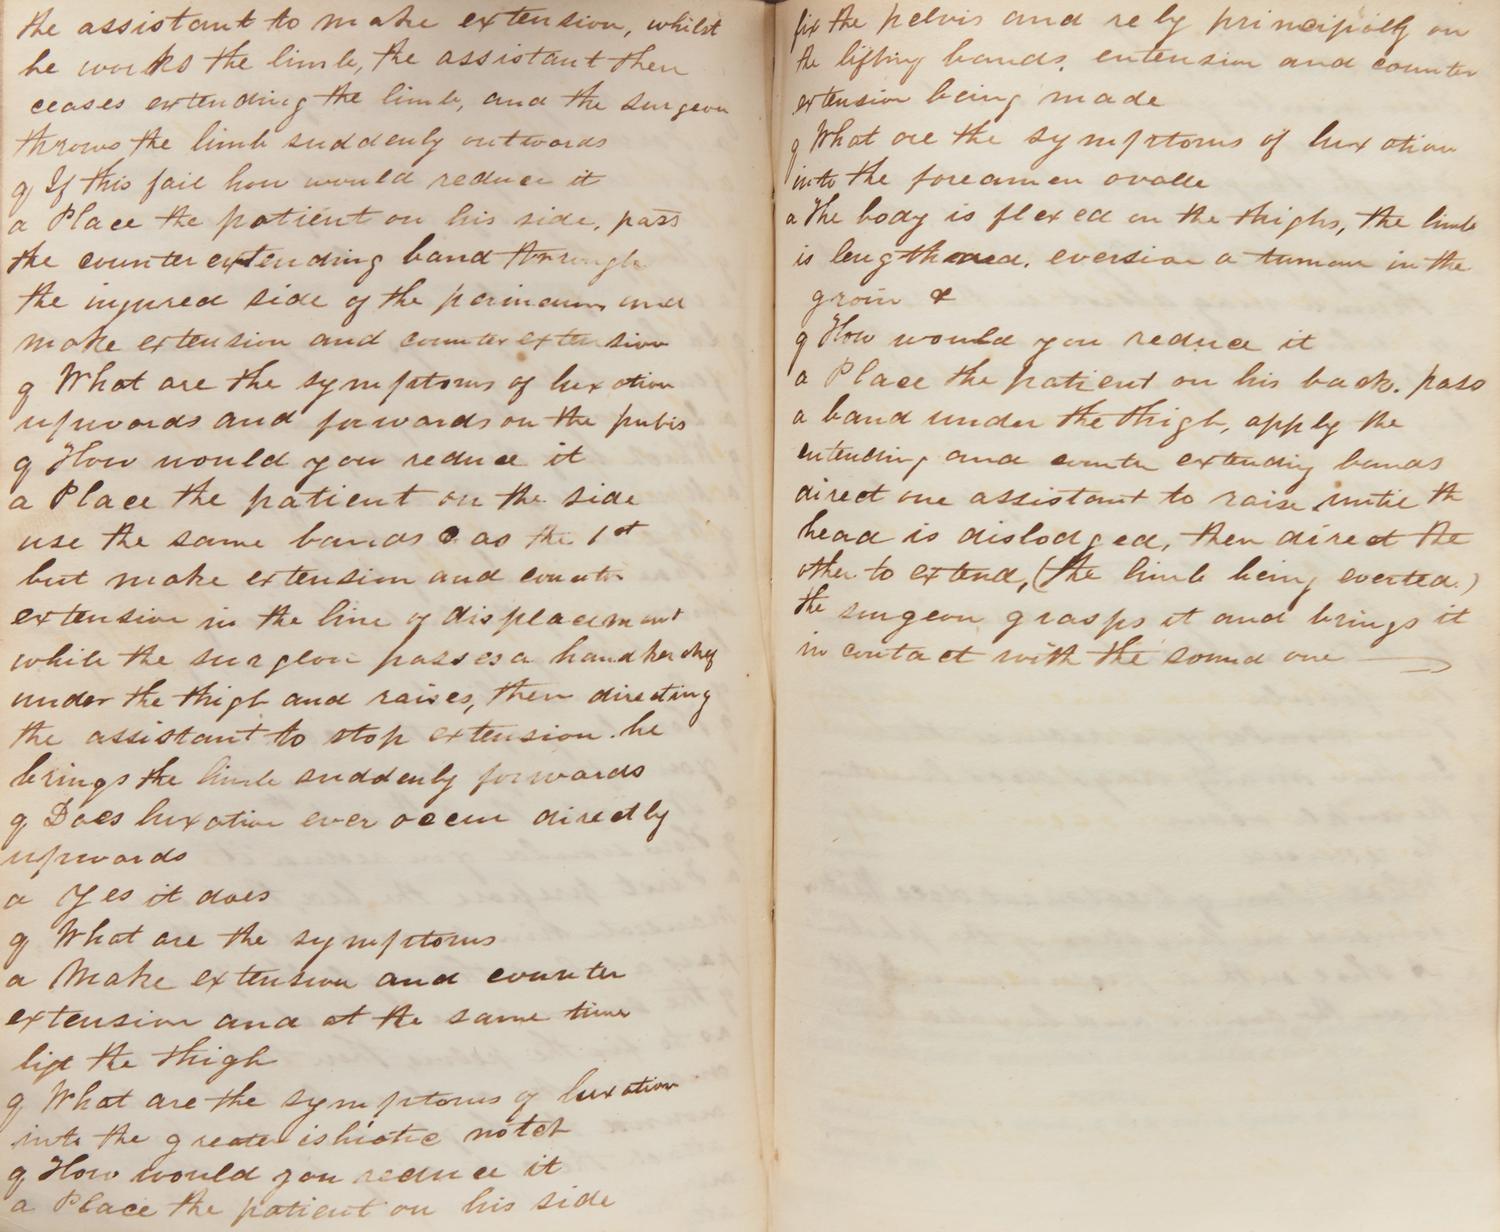 the assistant to make extension, whilst
he works the limb, the assistant then
ceases extending the limb, and the surgeon
throws the limb suddenly outwards
q If this fail how would reduce it
a Place the patient on his side, pass
the counter extending band through
the injured side of the perinaum and
make extension and counter extension
q What are the symptoms of luxation
upwards and forwards on the pubis
q How would you reduce it
a Place the patient on the side
use the same bands as the 1st
but make extension and counter
extension in the line of displacement
while the surgeon passes a handkerchef
under the thigh and raises, then directing
the assistant to stop extension he
brings the limb suddenly forwards
q Does luxation ever occur directly
upwards
a Yes it does
q What are the symptoms
a Make extension and counter
extension and at the same time
lift the thigh
q What are the symptoms of luxation
into the greater ishiatic notch
q How would you reduce it
a Place the patient on his side
fix the pelvis and rely principally on
the lifting bands, extension and counter
extension being made
q What are the symptoms of luxation
into the foreamen ovalle
a The body is flexed on the thighs, the limb
is lengthened, eversion a tumour in the
groin &
q How would you reduce it
a Place the patient on his back. pass
a band under the thigh, apply the
extending and counter extending bands
direct one assistant to raise until the
head is dislodged, then direct the
other to extend, (the limb being everted.)
the surgeon grasps it and brings it
in contact with the sound one